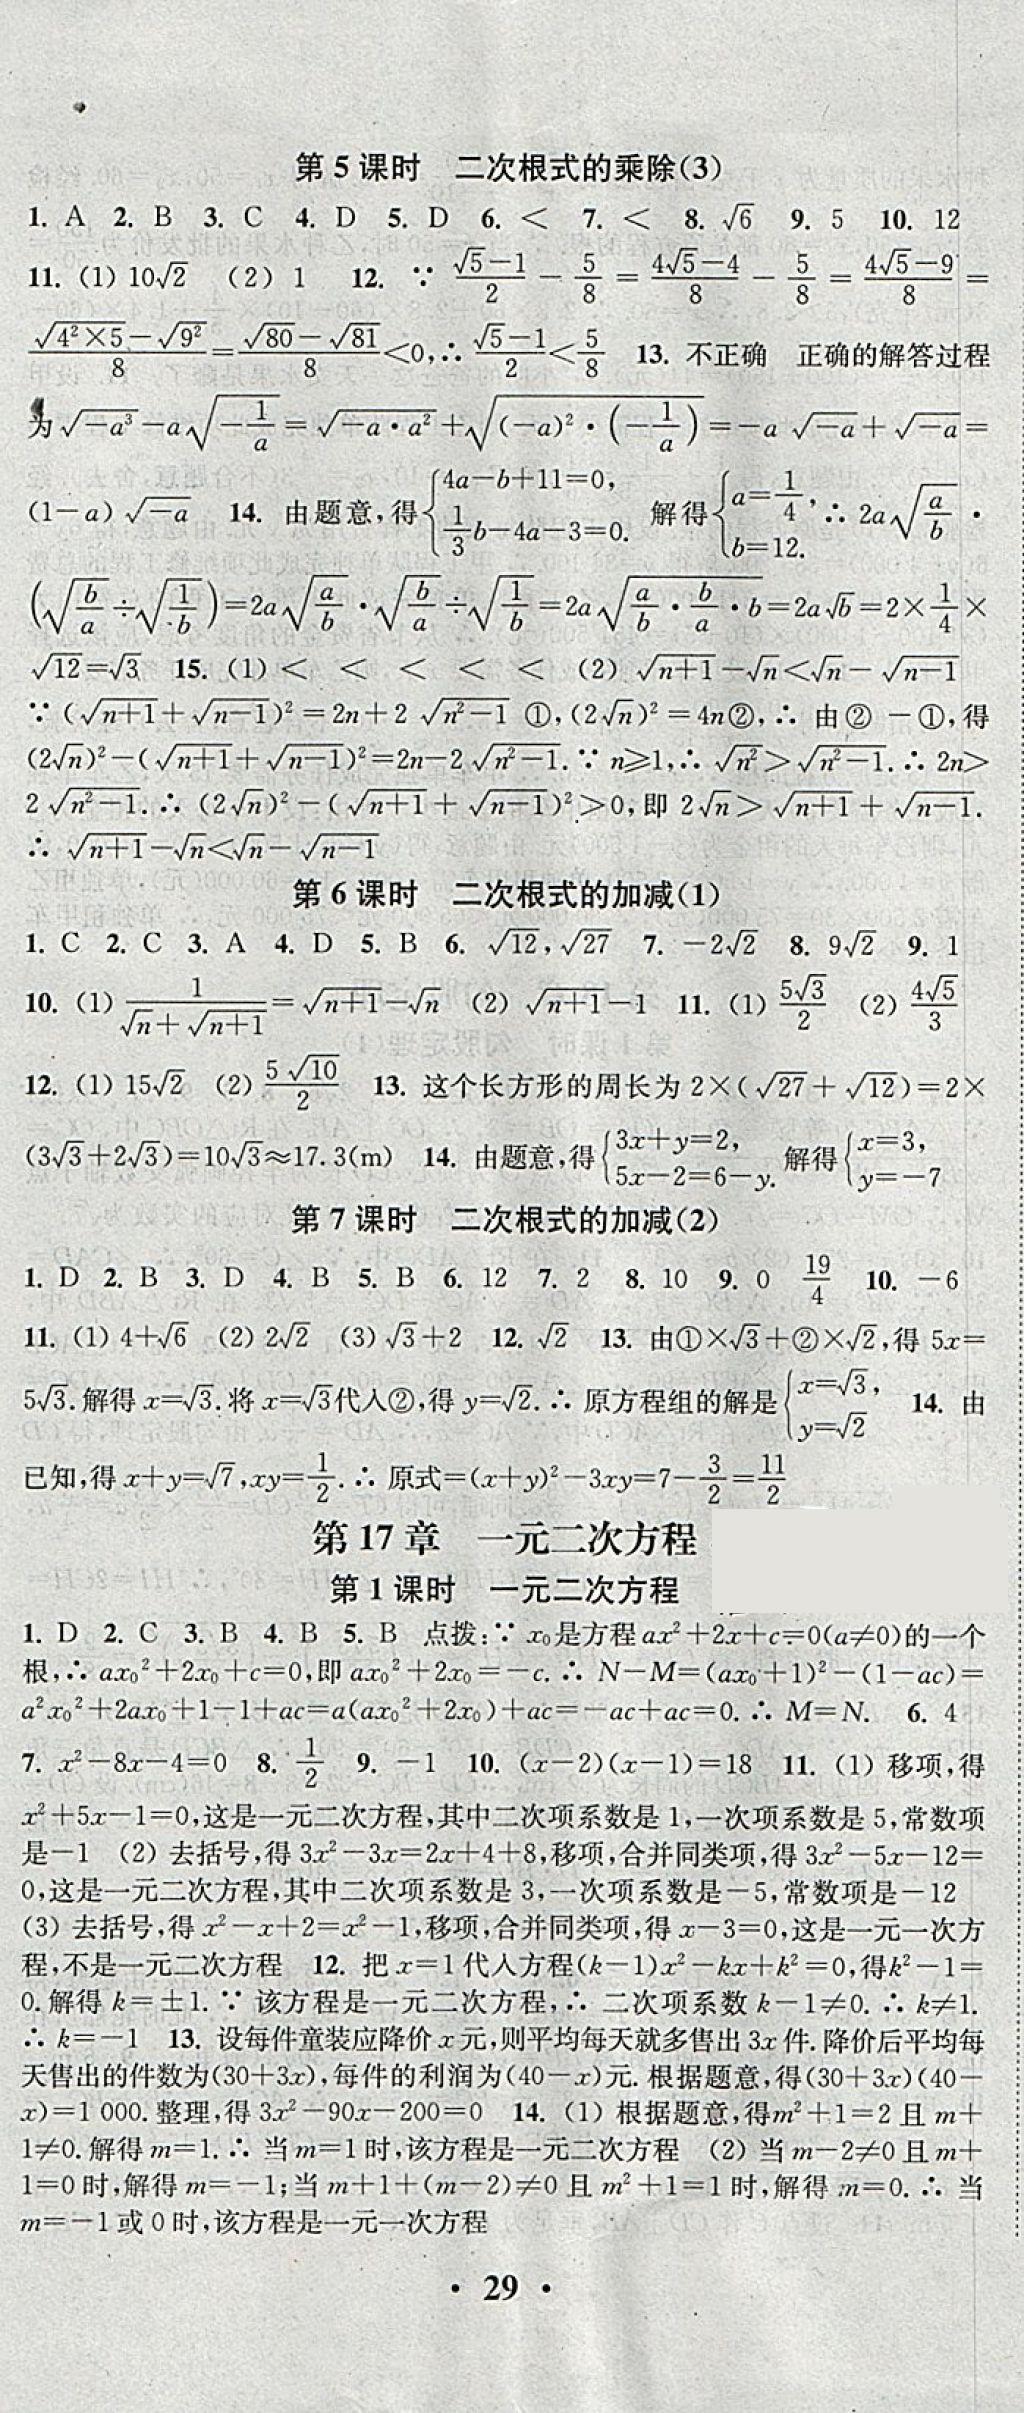 第 5 课时　二次根式的乘除(3)
1. A　2. B　3. C　4. D　5. D　6. <　7. <　8. √6　9. 5　10. 12
11. (1) 10√2　(2) 1　12. ∵ (√5－1)/2 － 5/8 ＝ (4√5－4)/8 － 5/8 ＝ (4√5－9)/8 ＝
(√(4²×5)－√(9²))/8＝(√80－√81)/8<0,∴ (√5－1)/2<5/8　13. 不正确　正确的解答过程
为 √(－a³)－a√(－1/a)＝√(－a·a²)＋√((－a)²·(－1/a))＝－a √(－a)＋√(－a)＝
(1－a) √(－a)　14. 由题意,得{4a－b＋11＝0, 1/3b－4a－3＝0. 解得{a＝1/4, b＝12. ∴ 2a√(a/b)·
(√(b/a)÷√(1/b))＝2a√(a/b)·√(b/a)÷√(1/b)＝2a√(a/b·b/a·b)＝2a√b＝2×1/4×
√12＝√3　15. (1) <　<　<　<　<　(2) √(n＋1)－√n<√n－√(n－1)
∵ (√(n＋1)＋√(n－1))²＝2n＋2 √(n²－1) ①,(2√n)²＝4n②,∴ 由② －①,得
(2√n)²－(√(n＋1)＋√(n－1))²＝2n－2√(n²－1). ∵ n≥1,∴ √(n²)>√(n²－1). ∴ 2n>
2 √(n²－1). ∴ (2√n)²－(√(n＋1)＋√(n－1))²>0,即 2√n>√(n＋1)＋√(n－1).
∴ √(n＋1)－√n<√n－√(n－1)
第 6 课时　二次根式的加减(1)
1. C　2. C　3. A　4. D　5. B　6. √12,√27　7. －2√2　8. 9√2　9. 1
10. (1) 1/(√n＋√(n＋1))＝√(n＋1)－√n　(2) √(n＋1)－1　11. (1) 5√3/2　(2) 4√5/3
12. (1) 15√2　(2) 5√10/2　13. 这个长方形的周长为 2×(√27＋√12)＝2×
(3√3＋2√3)＝10√3≈17.3(m)　14. 由题意,得{3x＋y＝2, 5x－2＝6－y. 解得{x＝3, y＝－7
第 7 课时　二次根式的加减(2)
1. D　2. B　3. D　4. B　5. B　6. 12　7. 2　8. 10　9. 0　19/4　10. －6
11. (1) 4＋√6　(2) 2√2　(3) √3＋2　12. √2　13. 由①×√3＋②×√2,得 5x＝
5√3. 解得 x＝√3. 将 x＝√3代入②,得 y＝√2. ∴ 原方程组的解是{x＝√3, y＝√2　14. 由
已知,得 x＋y＝√7,xy＝1/2. ∴ 原式＝(x＋y)²－3xy＝7－3/2＝11/2
第 17 章　一元二次方程
第 1 课时　一元二次方程
1. D　2. C　3. B　4. B　5. B　点拨:∵ x₀是方程 ax²＋2x＋c＝0(a≠0)的一个
根,∴ ax₀²＋2x₀＋c＝0,即 ax₀²＋2x₀＝－c. ∴ N－M＝(ax₀＋1)²－(1－ac)＝
a²x₀²＋2ax₀＋1－1＋ac＝a(ax₀²＋2x₀)＋ac＝－ac＋ac＝0. ∴ M＝N.　6. 4
7. x²－8x－4＝0　8. 1/2　9. －1　10. (x－2)(x－1)＝18　11. (1) 移项,得
x²＋5x－1＝0,这是一元二次方程,其中二次项系数是 1,一次项系数是 5,常数项
是－1　(2) 去括号,得 3x²－3x＝2x＋4＋8,移项,合并同类项,得 3x²－5x－12＝
0,这是一元二次方程,其中二次项系数是 3,一次项系数是－5,常数项是－12
(3) 去括号,得 x²－x＋2＝x²－1,移项,合并同类项,得 x－3＝0,这是一元一次方
程,不是一元二次方程　12. 把 x＝1 代入方程(k－1)x²－kx＋k²＝0,得k²－1＝
0. 解得 k＝±1. ∵ 该方程是一元二次方程,∴ 二次项系数 k－1≠0. ∴ k≠1.
∴ k＝－1　13. 设每件童装应降价 x 元,则平均每天就多售出 3x 件. 降价后平均每
天售出的件数为(30＋3x),每件的利润为(40－x)元. 根据题意,得(30＋3x)(40－
x)＝1 000. 整理,得 3x²－90x－200＝0　14. (1) 根据题意,得m²＋1＝2 且 m＋
1≠0. 解得 m＝1. ∴ 当 m＝1 时,该方程是一元二次方程　(2) 当 m－2≠0 且 m＋
1＝0 时,解得 m＝－1;当 m＋1＋(m－2)≠0 且 m²＋1＝1 时,解得 m＝0. ∴ 当
m＝－1 或 0 时,该方程是一元一次方程
· 29 ·